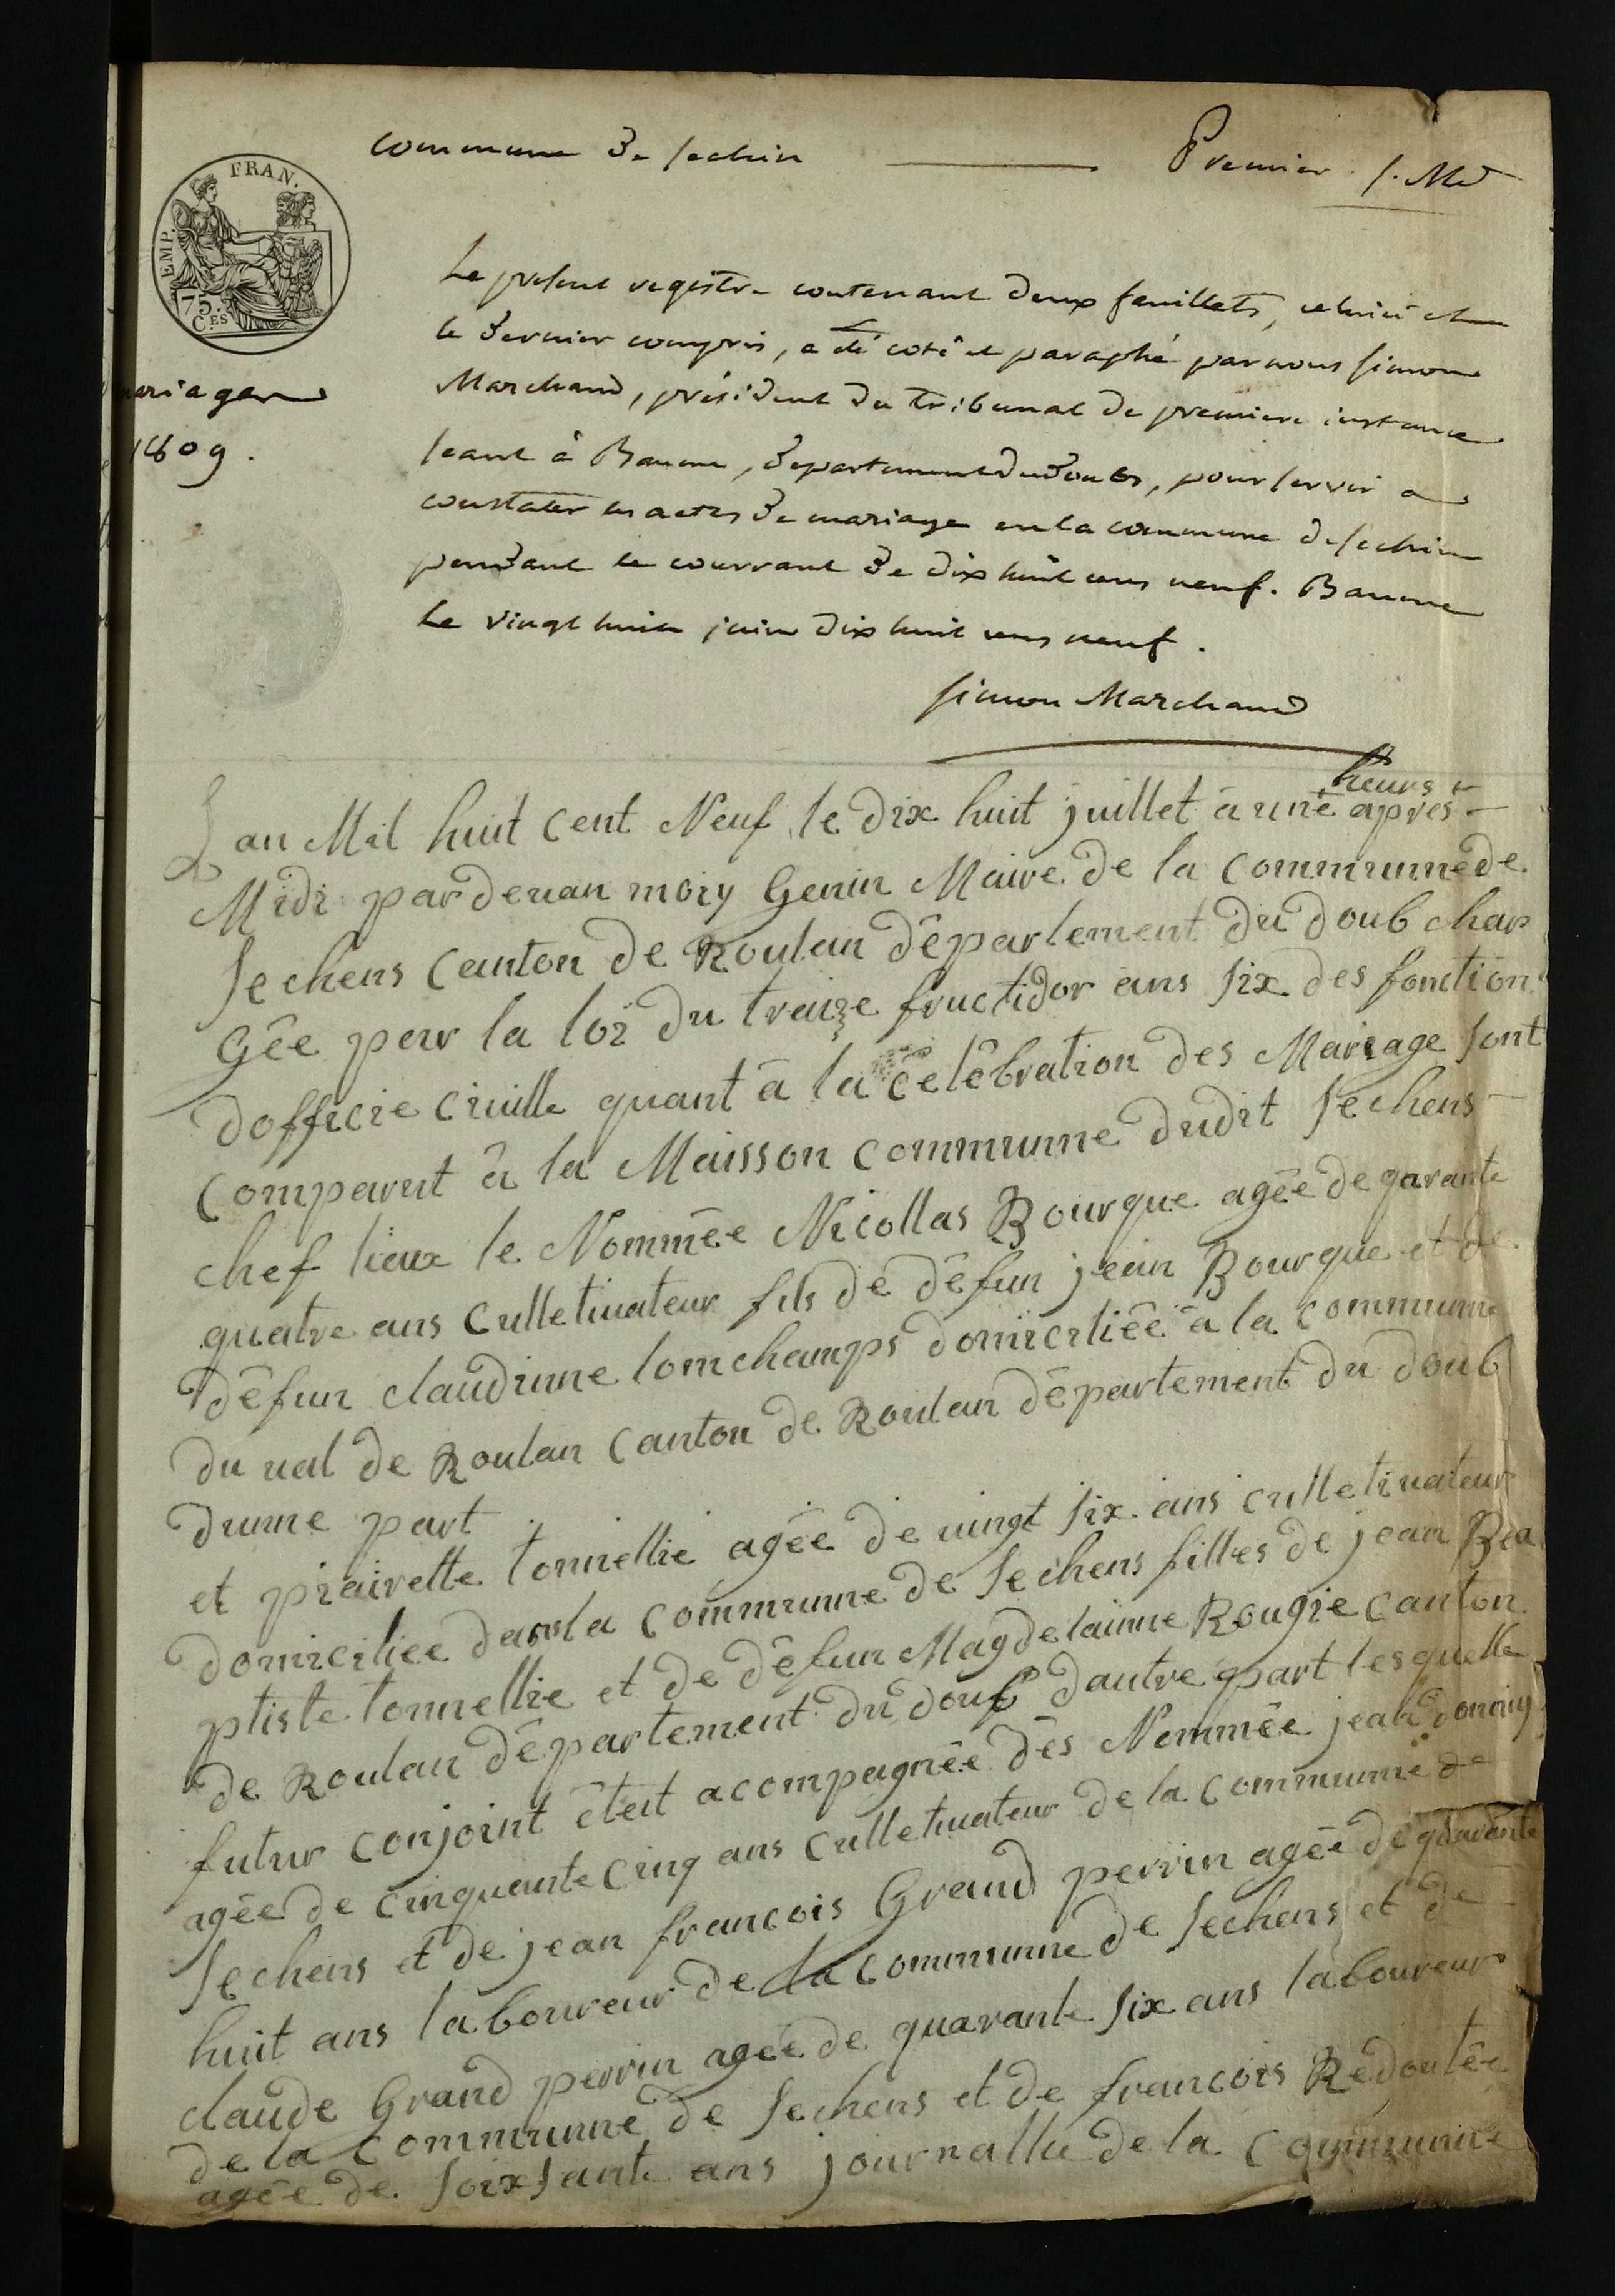 commune de sechin ——— Premier. s. Md
EMP. FRAN.
75.
C.ES
mariages
1809.
Le present registre contenant deux feuillets, celuici et
le dernier compris, a été coté et paraphé par nous simon
Marchand, président du tribunal de premiere instance
seant à Baume, departement du doubs, pour servir a
constater les actes de mariage en la commune de sechin
pendant le courrant de dix huit cens neuf. Baume
Le vingt huit juin dix huit cens neuf.
simon Marchand
heurs
Lan Mil huit Cent Neuf le dix huit juillet à une après
Midi par devan moiy Genin Maire de la Communne de
sechens Canton de Roulan département du doub char
Gée par la loi du traize fructidor ans six des fonction
dofficie civille quant à la célébration des Mariage sont
Comparut à la Maisson Communne dudit sechens
chef lieux le Nommée Nicollas Bourque agée de qarante
quatre ans Culletivateur fils de défun jean Bourque et de
défun claudinne lomchamps domiciliéé à la Communne
du val de Roulan Canton de Roulan département du doub
dunne part
et piairette tonnellie agée de vingt six ans culletivateur
domiciliée dans la Communne de sechens filles de jean Ba
ptiste tonnellie et de défun Magdelainne Rougie Canton
de Roulan département du doub dautre part lesquelle
futur conjoint état acompagnée dés Nommée jean
agée de cinquante cinq ans Culletivateur de la Communne de
sechens et de jean francois Grand perrin agée de quarante
huit ans laboureur de la Communne de sechens et de
claude Grand perrin agée de quarante six ans laboureur
de la Communne de sechens et de francois Redoutée
agée de soixsante ans journallie de la Communne